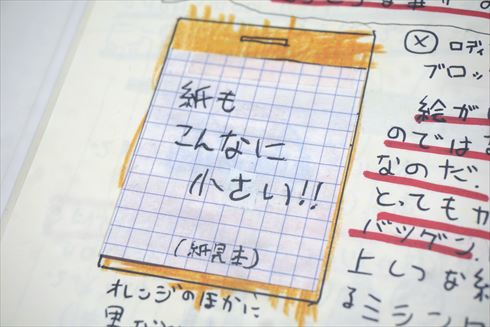 紙も
こんなに
小さい!!
(紙見本)
オレンジのほかに
ロディ
ブロッ
絵が
のでは
なのだ.
とっても
バツグン
上しつな
るミシン